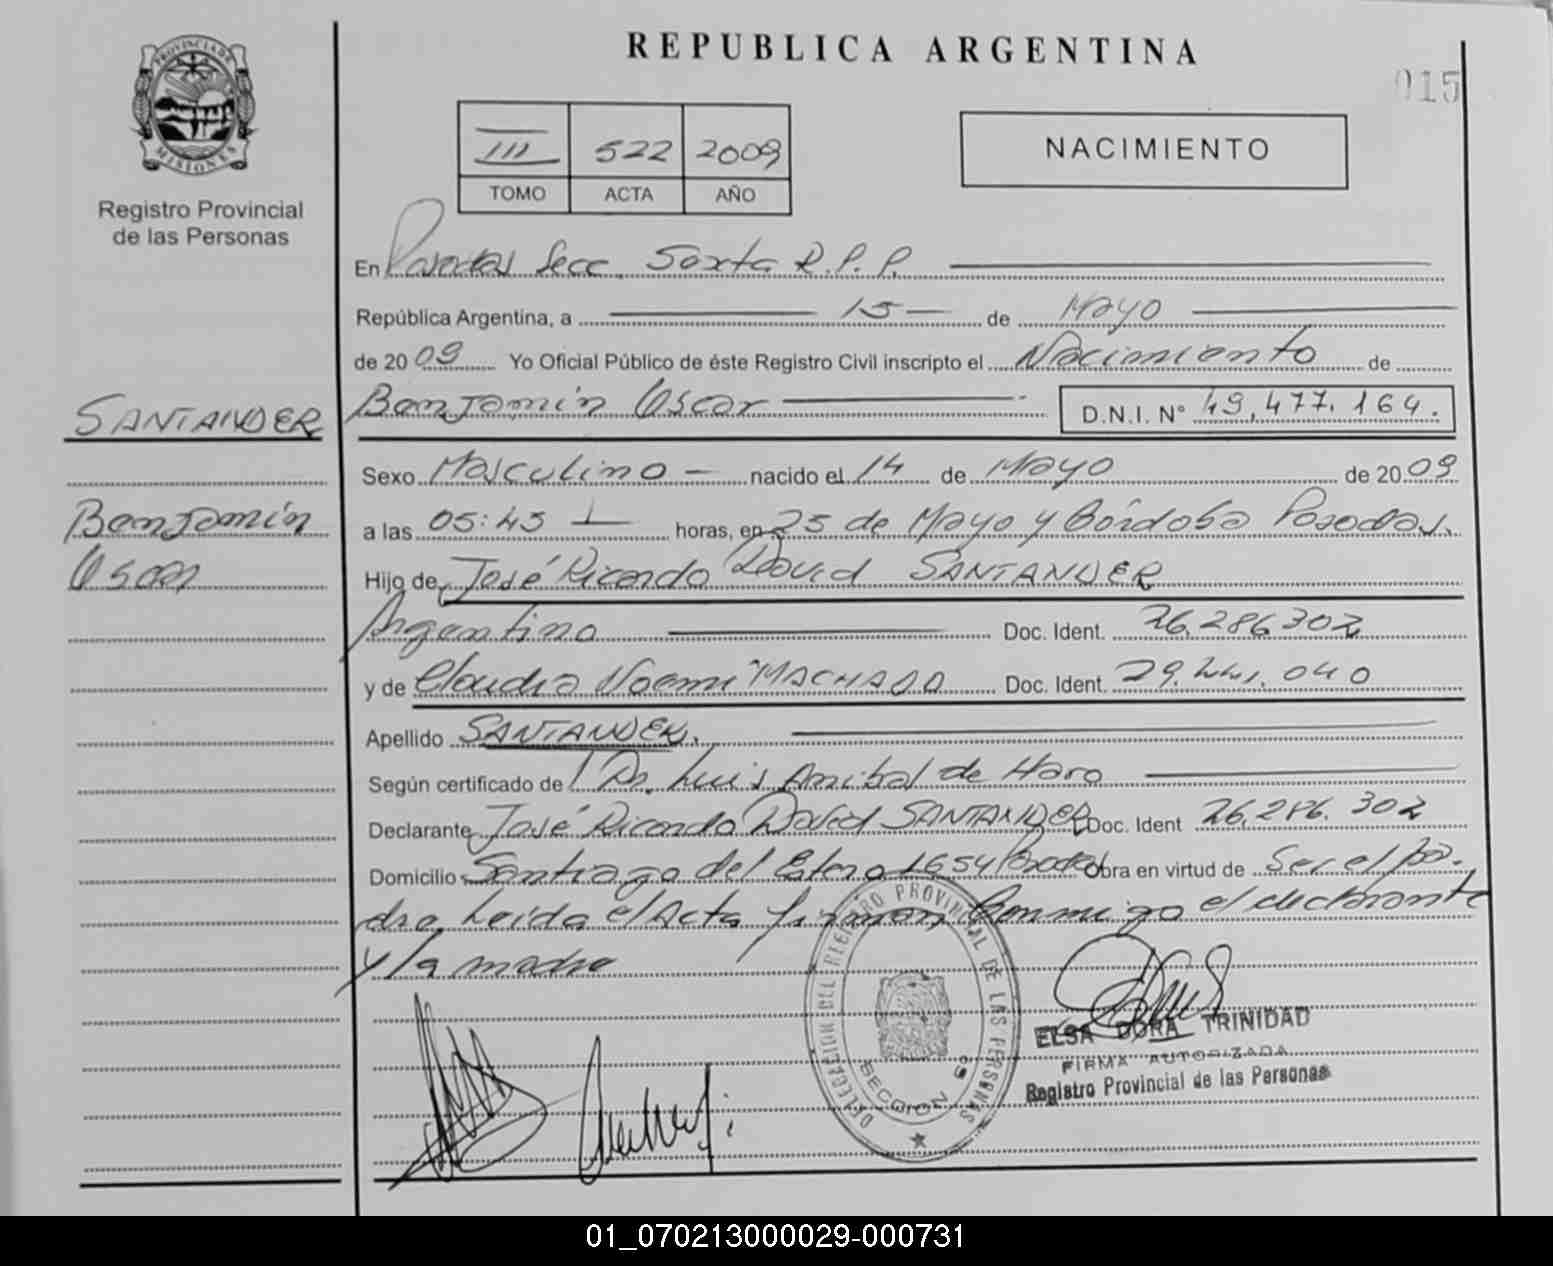 REPUBLICA ARGENTINA
015
PROVINCIA DE
MISIONES
Registro Provincial
de las Personas
III 522 2009
TOMO ACTA AÑO
NACIMIENTO
En Posadas Secc. Sexta R.P.P.
República Argentina, a 15 de Mayo
de 2009 Yo Oficial Público de éste Registro Civil inscripto el Nacimiento de
SANTANDER
Benjamín Oscar D.N.I. N° 49.477.164.
Sexo Masculino nacido el 14 de Mayo de 2009
Benjamín
a las 05:45 horas, en 25 de Mayo y Córdoba Posadas.
Oscar
Hijo de José Ricardo David SANTANDER
Argentino Doc. Ident. 26.286.302
y de Claudia Noemi MACHADO Doc. Ident. 29. 040
Apellido SANTANDER.
Según certificado de Dr. Luis Anibal de Haro
Declarante José Ricardo David SANTANDER Doc. Ident 26.286.302
Domicilio Santiago del Estero 1654 Posadas Obra en virtud de Ser el pa-
dre Leida el Acta firman Conmigo el declarante
y la madre
DELEGACION DEL REGISTRO PROVINCIAL DE LAS PERSONAS
SECCION 6ª
ELSA DORA TRINIDAD
FIRMA AUTORIZADA
Registro Provincial de las Personas
01_070213000029-000731